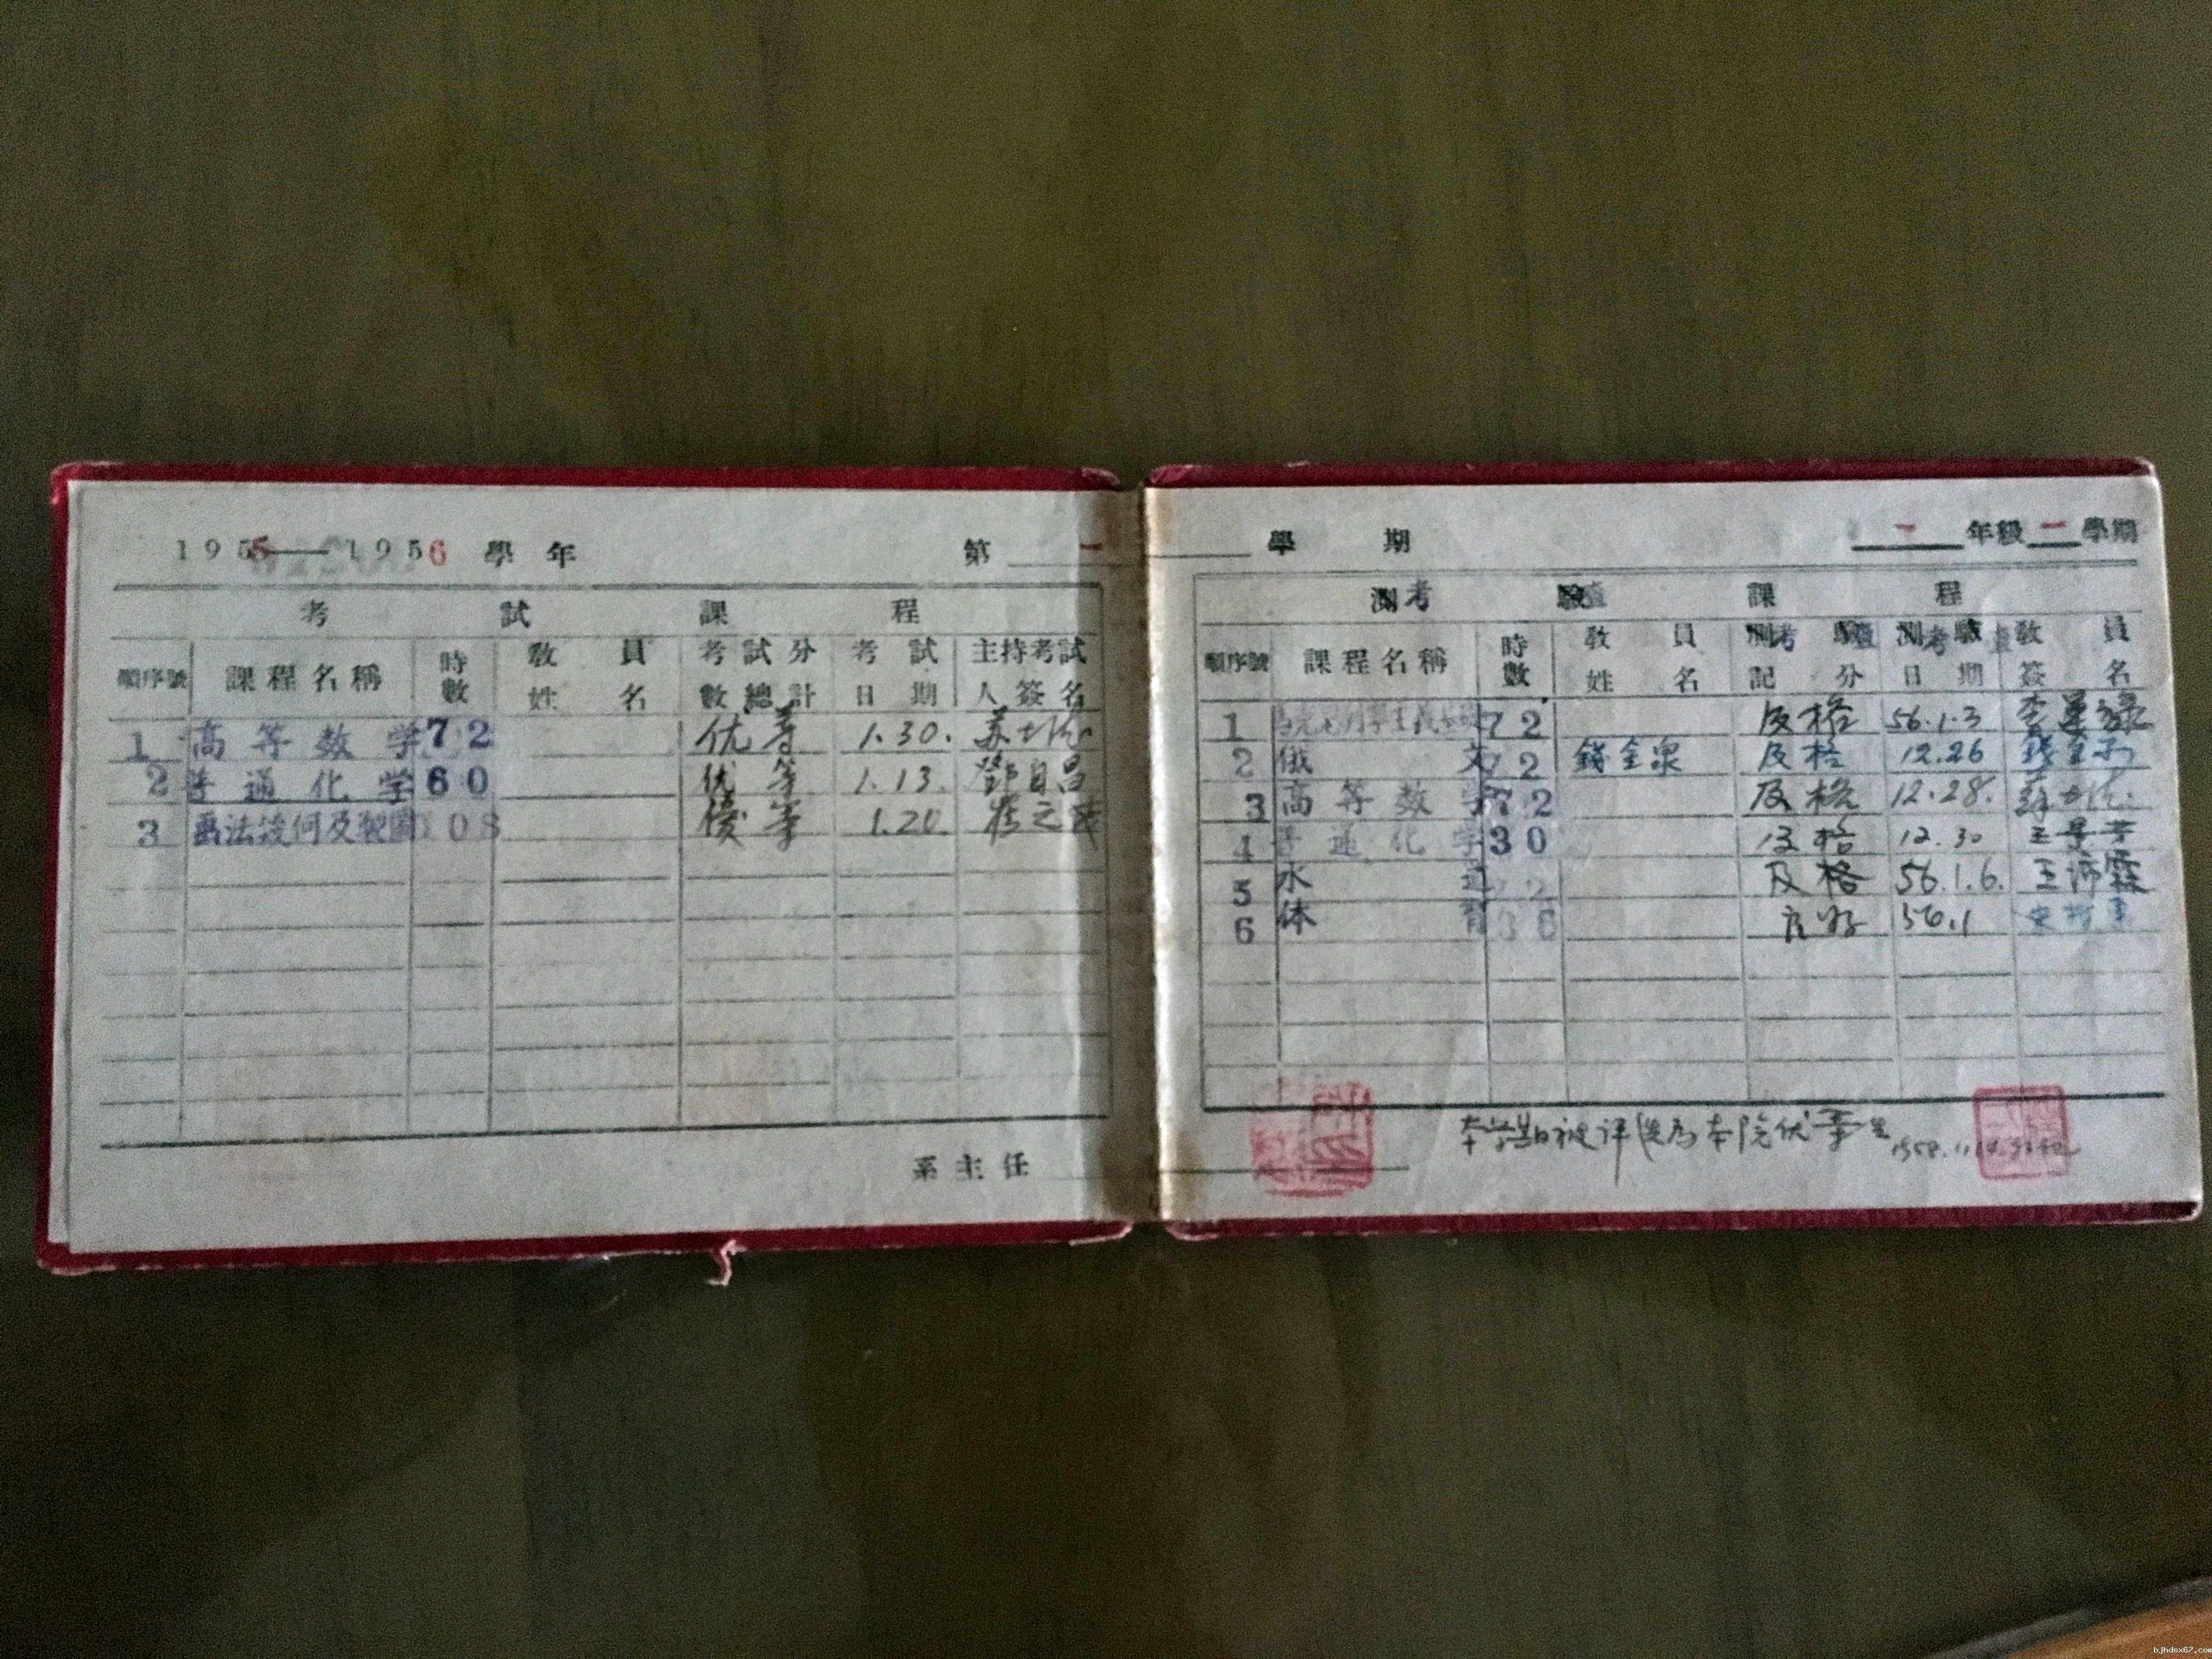 1955——1956 學年 第一
考試課程
順序號 課程名稱 時數 教員姓名 考試分數總計 考試日期 主持考試人簽名
1 高等数学 72 优等 1.30.
2 普通化学 60 优等 1.13. 鄧自昌
3 画法幾何及製圖 108 優等 1.20.
系主任
學期 一年級二學期
測考驗查課程
順序號 課程名稱 時數 教員姓名 測考驗查記分 測考驗查日期 教員簽名
1 72 及格 56.1.3
2 俄文 72 錢金泉 及格 12.26
3 高等数学 72 及格 12.28.
4 普通化学 30 及格 12.30
5 水 72 及格 56.1.6. 王沛霖
6 体育 36 良好 56.1
本学期被评选为本院优等生
bjhdsx67.com